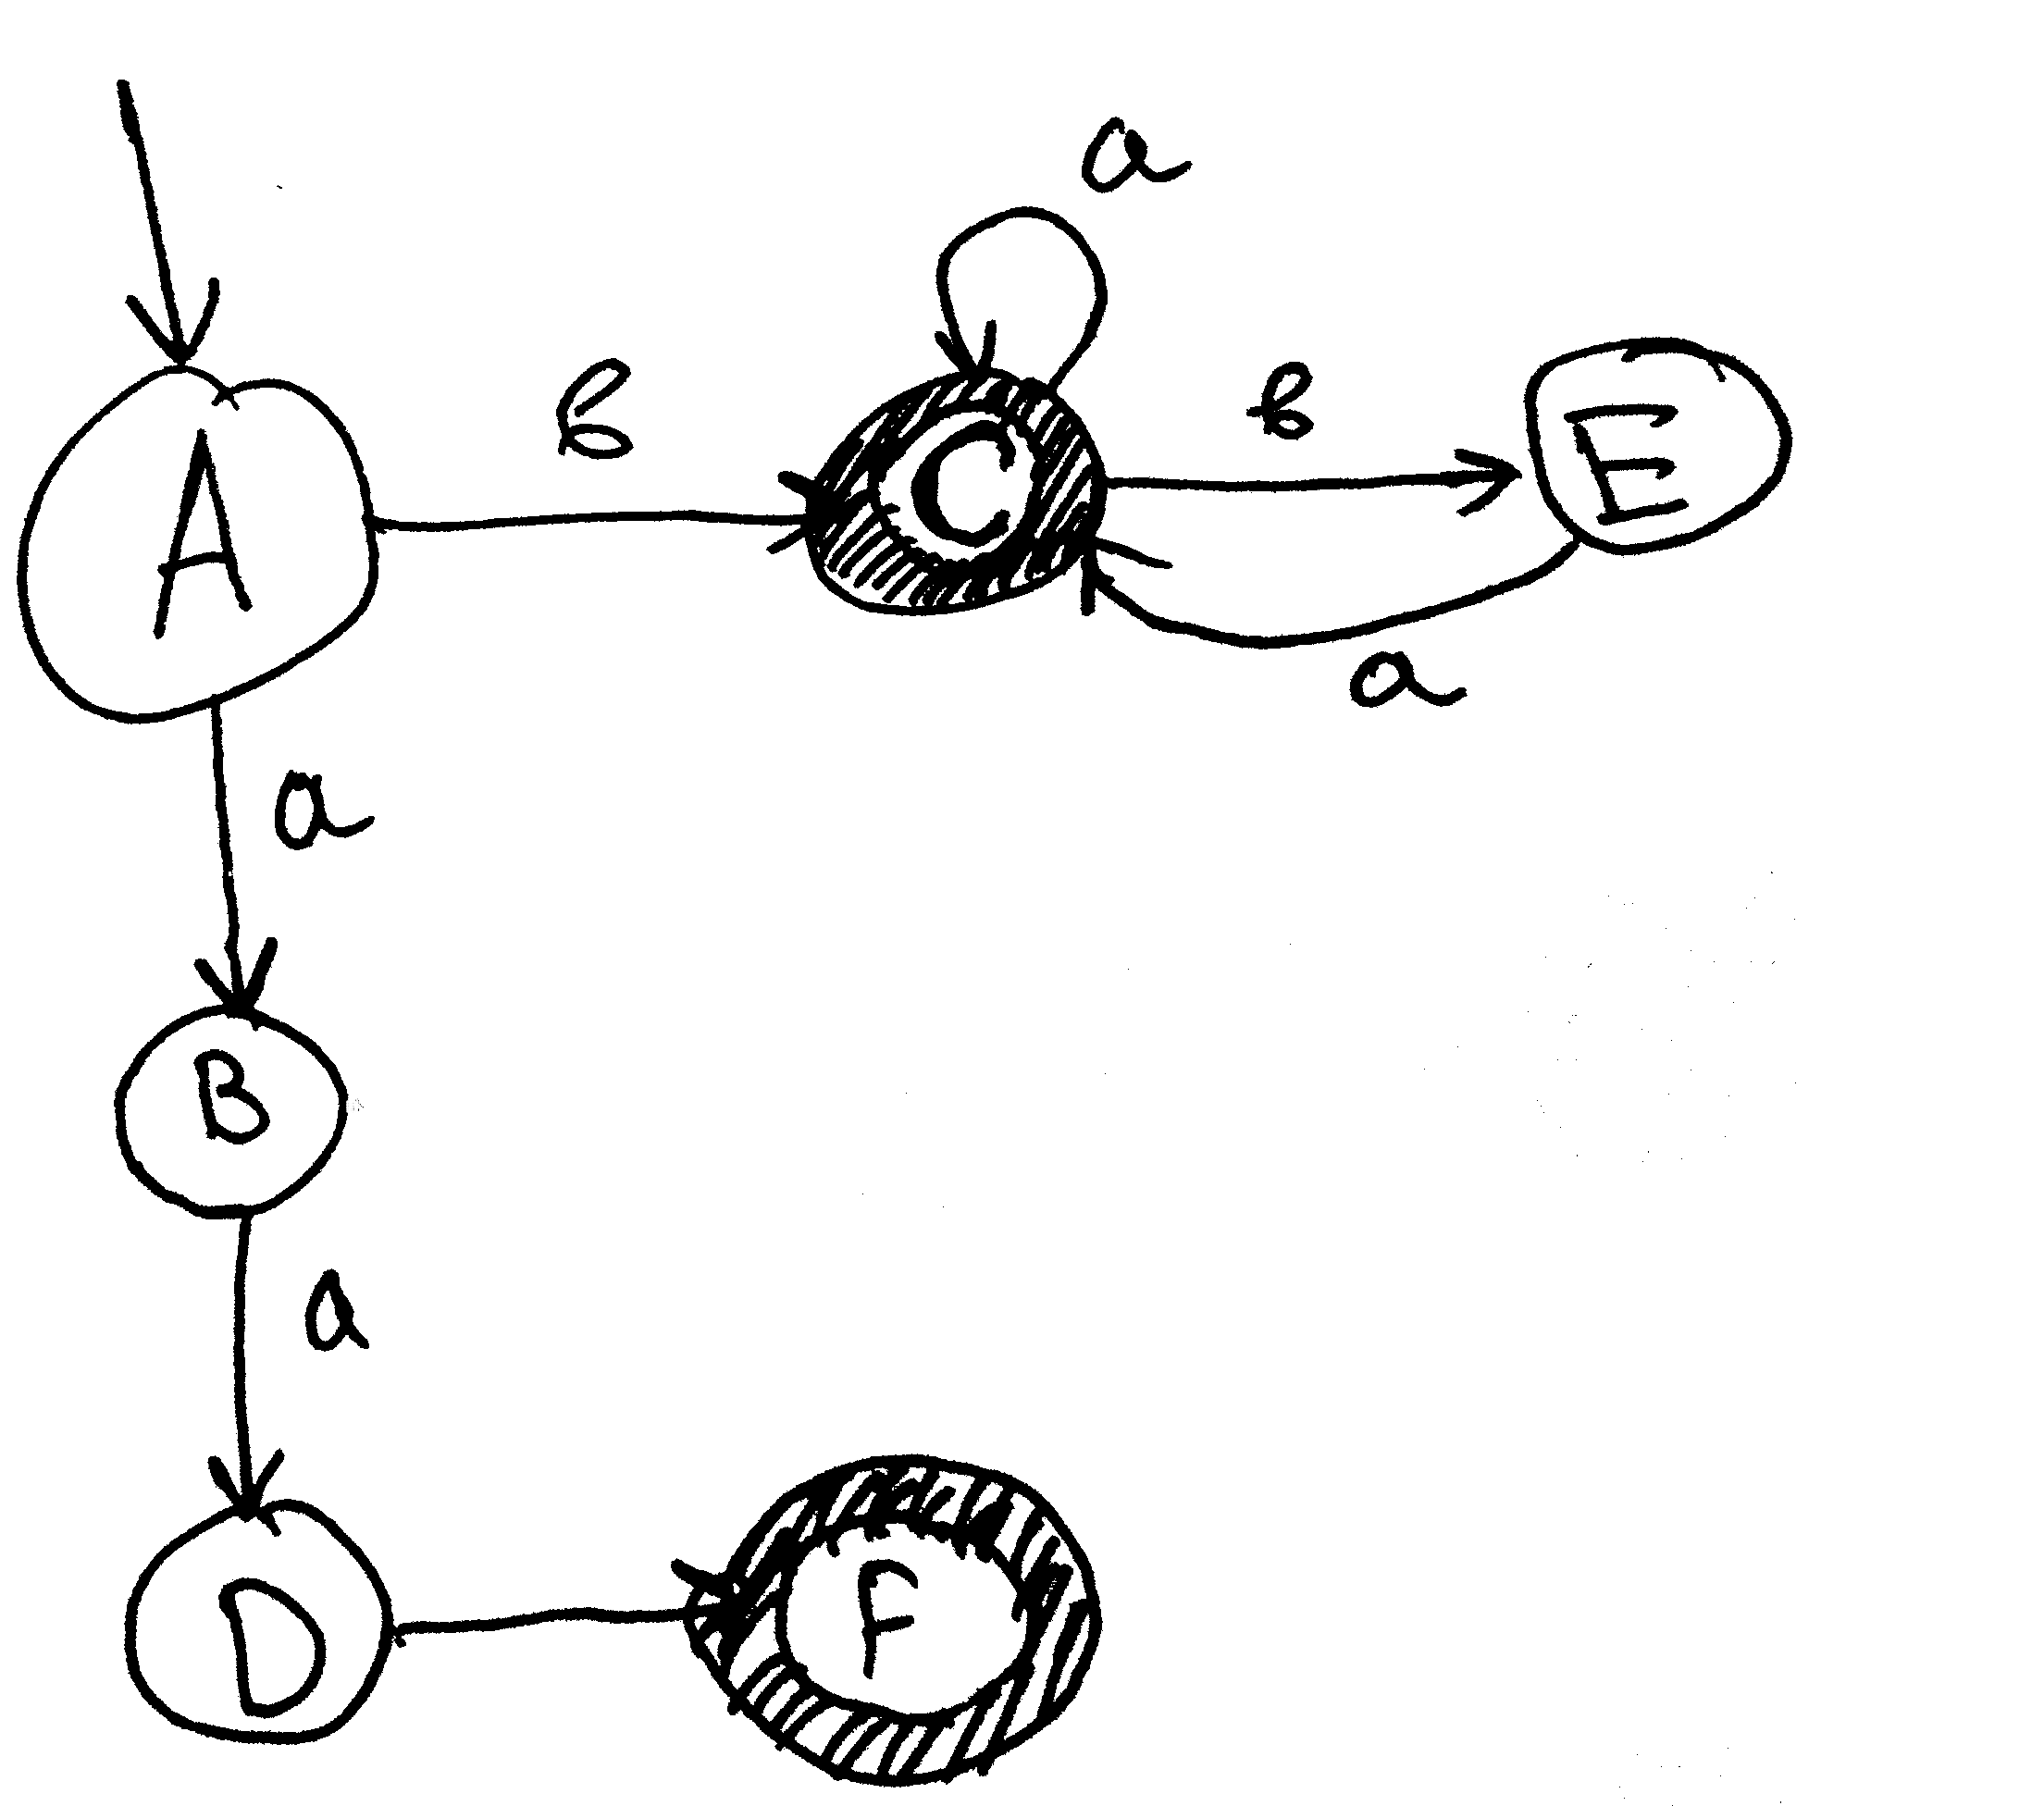 a
b b
A C E
a
a
B
a
D F